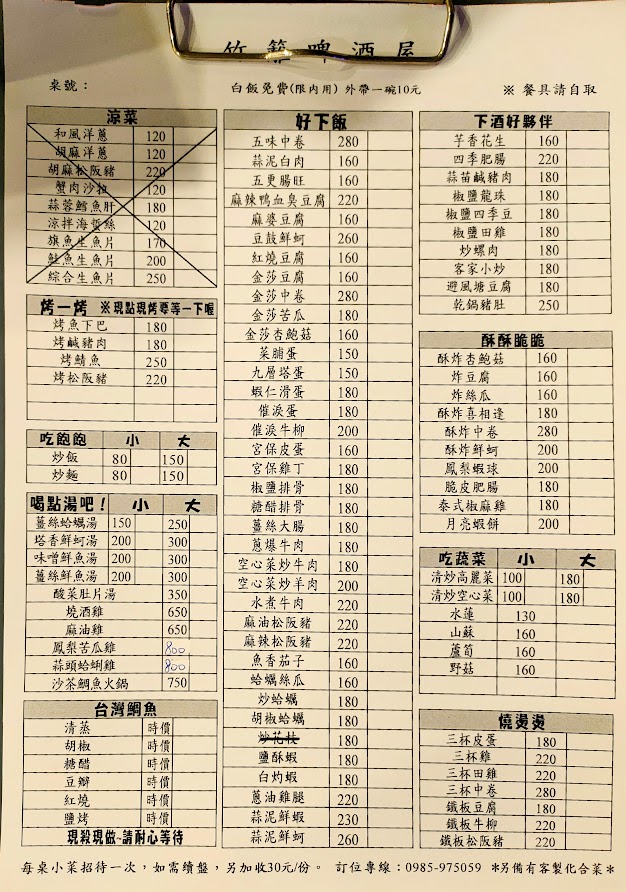 竹籬啤酒屋
桌號：
白飯免費(限內用)外帶一碗10元
※ 餐具請自取
涼菜
和風洋蔥 120
胡麻洋蔥 120
胡麻松阪豬 220
蟹肉沙拉 120
蒜蓉鱈魚肝 180
涼拌海蜇絲 120
旗魚生魚片 170
鮭魚生魚片 200
綜合生魚片 250
烤一烤 ※現點現烤要等一下喔
烤魚下巴 180
烤鹹豬肉 180
烤鯖魚 250
烤松阪豬 220
吃飽飽 小 大
炒飯 80 150
炒麵 80 150
喝點湯吧！ 小 大
薑絲蛤蠣湯 150 250
塔香鮮蚵湯 200 300
味噌鮮魚湯 200 300
薑絲鮮魚湯 200 300
酸菜肚片湯 350
燒酒雞 650
麻油雞 650
鳳梨苦瓜雞 800
蒜頭蛤蜊雞 800
沙茶鯛魚火鍋 750
台灣鯛魚
清蒸 時價
胡椒 時價
糖醋 時價
豆瓣 時價
紅燒 時價
鹽烤 時價
現殺現做~請耐心等待
好下飯
五味中卷 280
蒜泥白肉 160
五更腸旺 160
麻辣鴨血臭豆腐 220
麻婆豆腐 160
豆鼓鮮蚵 260
紅燒豆腐 160
金莎豆腐 160
金莎中卷 280
金莎苦瓜 180
金莎杏鮑菇 160
菜脯蛋 150
九層塔蛋 150
蝦仁滑蛋 180
催淚蛋 180
催淚牛柳 200
宮保皮蛋 160
宮保雞丁 180
椒鹽排骨 180
糖醋排骨 180
薑絲大腸 180
蔥爆牛肉 180
空心菜炒牛肉 180
空心菜炒羊肉 200
水煮牛肉 220
麻油松阪豬 220
麻辣松阪豬 220
魚香茄子 160
蛤蠣絲瓜 160
炒蛤蠣 180
胡椒蛤蠣 180
炒花枝 180
鹽酥蝦 180
白灼蝦 180
蔥油雞腿 220
蒜泥鮮蝦 230
蒜泥鮮蚵 260
下酒好夥伴
芋香花生 160
四季肥腸 220
蒜苗鹹豬肉 180
椒鹽龍珠 180
椒鹽四季豆 180
椒鹽田雞 180
炒螺肉 180
客家小炒 180
避風塘豆腐 180
乾鍋豬肚 250
酥酥脆脆
酥炸杏鮑菇 160
炸豆腐 160
炸絲瓜 160
酥炸喜相逢 180
酥炸中卷 280
酥炸鮮蚵 200
鳳梨蝦球 200
脆皮肥腸 180
泰式椒麻雞 180
月亮蝦餅 200
吃蔬菜 小 大
清炒高麗菜 100 180
清炒空心菜 100 180
水蓮 130
山蘇 160
蘆筍 160
野菇 160
燒燙燙
三杯皮蛋 180
三杯雞 220
三杯田雞 220
三杯中卷 280
鐵板豆腐 180
鐵板牛柳 220
鐵板松阪豬 220
每桌小菜招待一次，如需續盤，另加收30元/份。 訂位專線：0985-975059 *另備有客製化合菜*